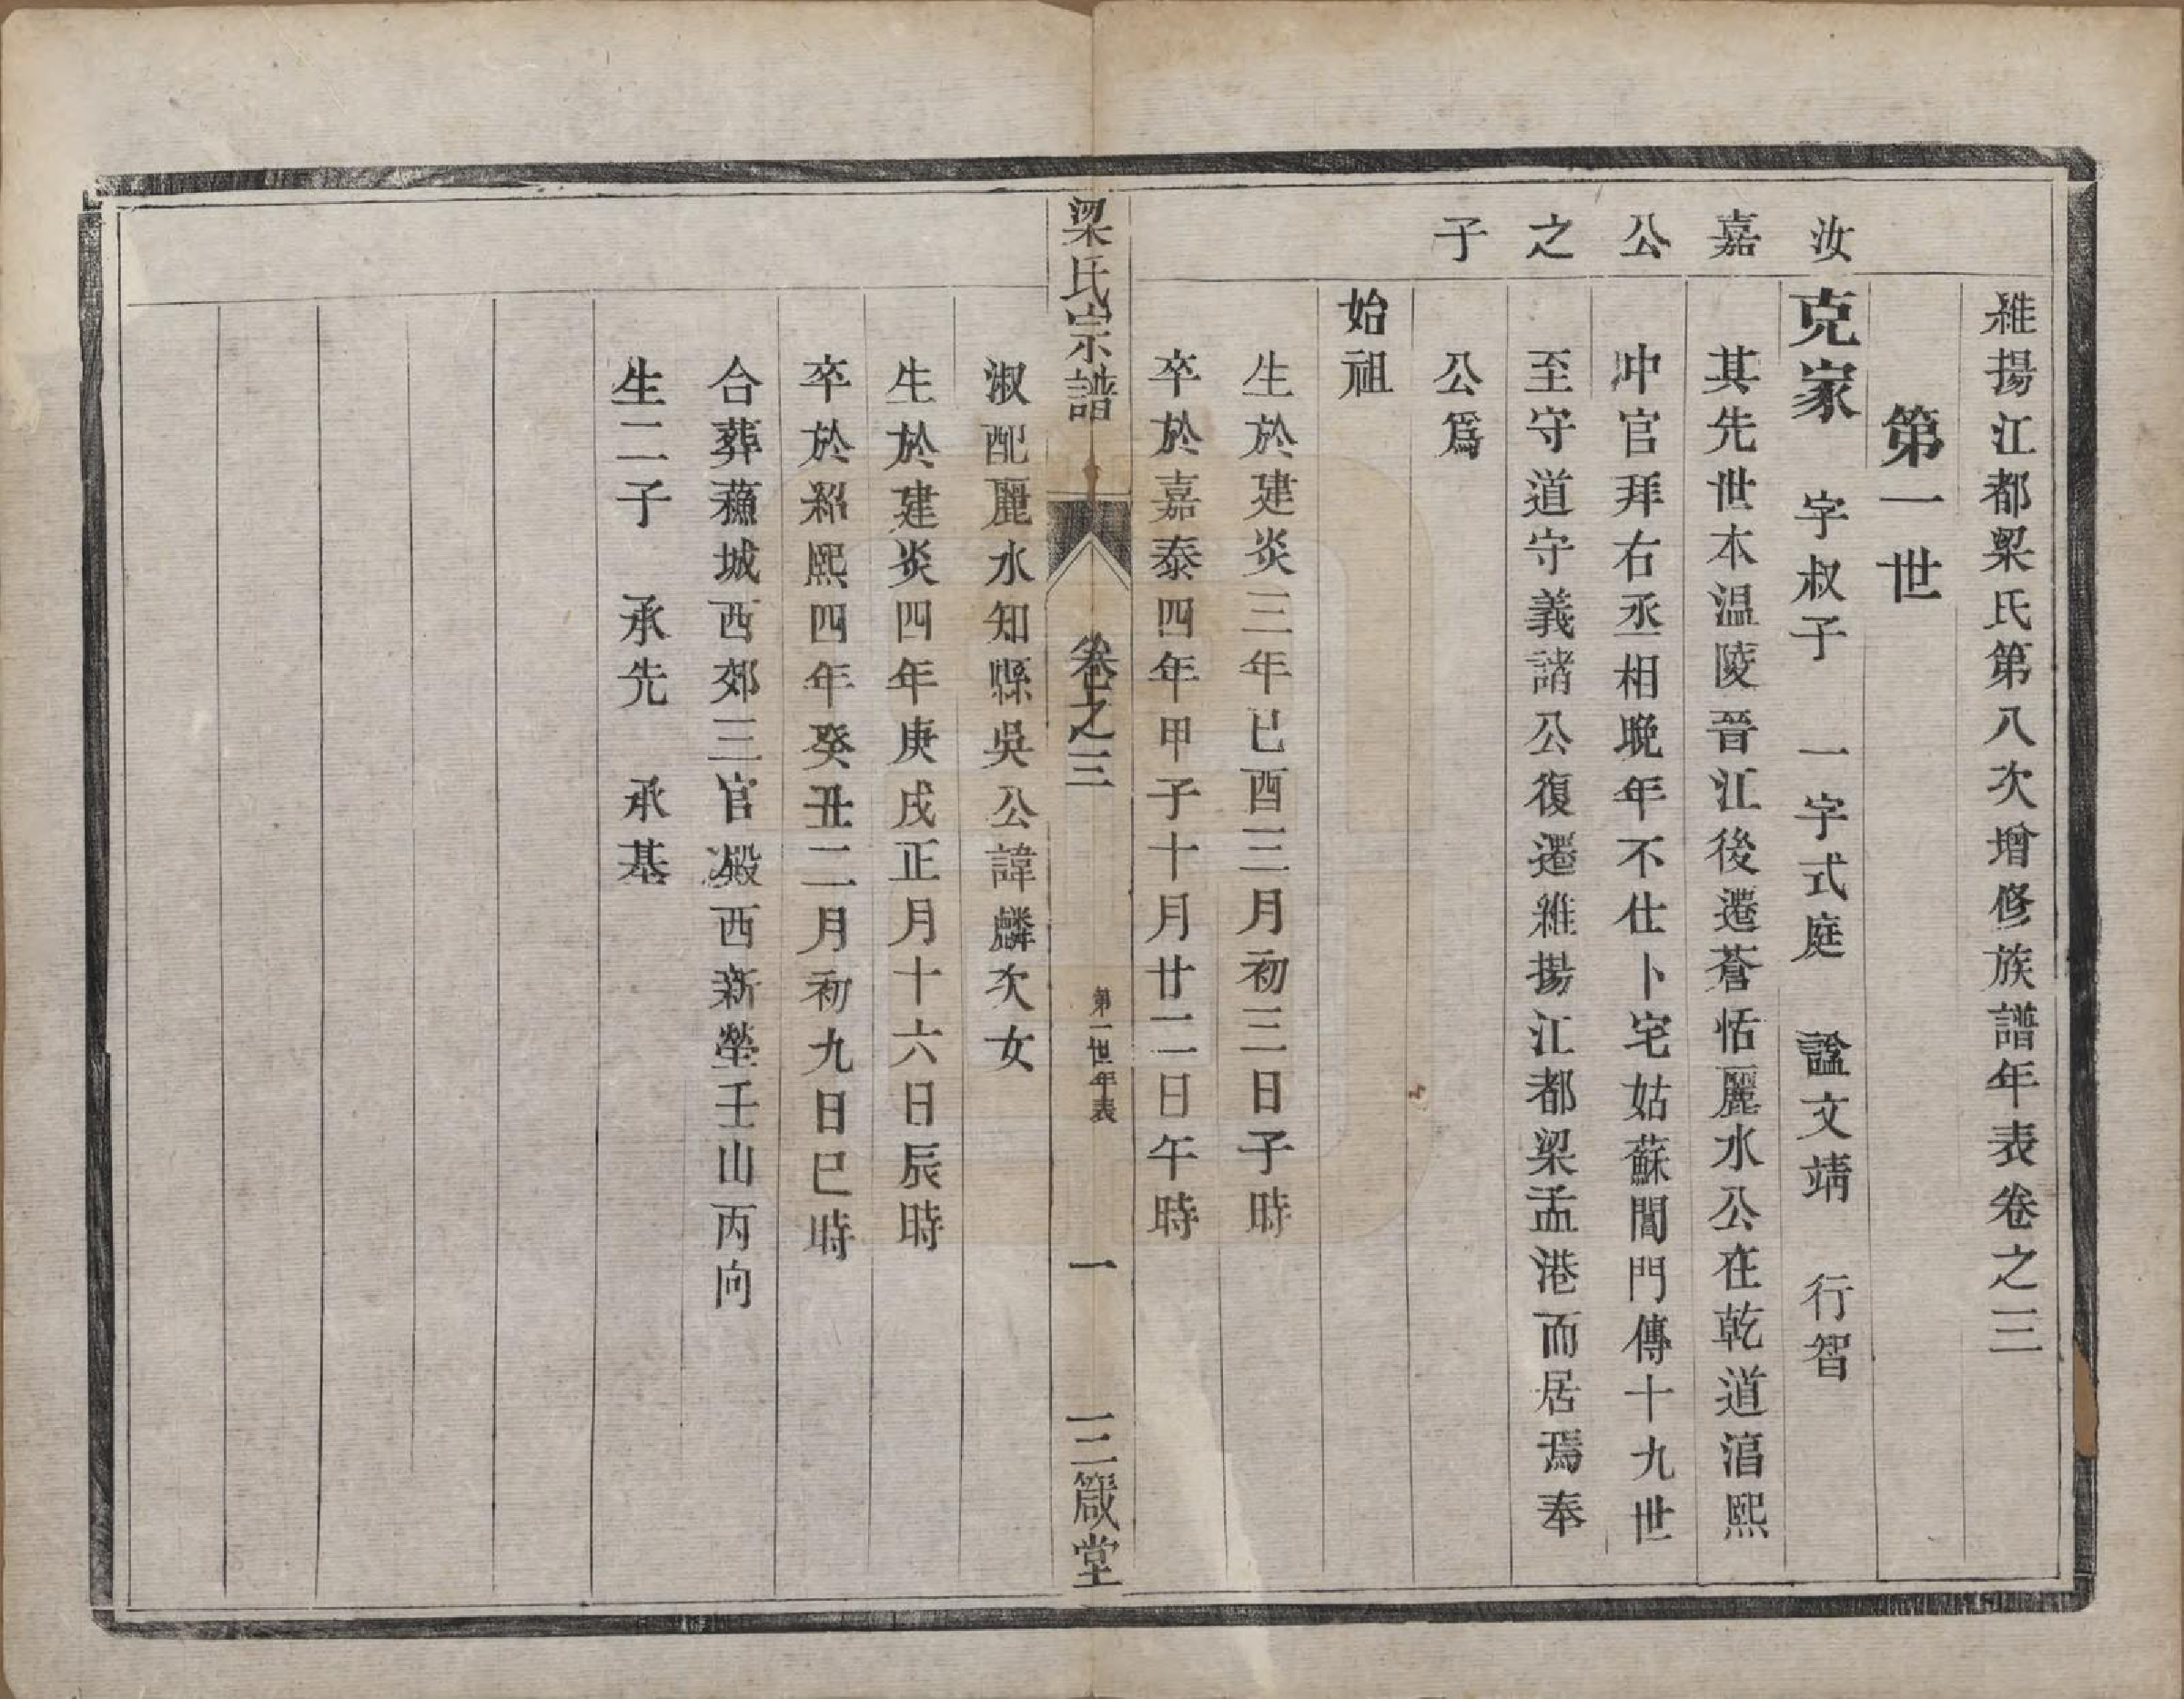 維揚江都梁氏第八次增修族譜年表卷之三
第一世
汝嘉公之子
克家　字叔子　一字式庭　諡文靖　行智
其先世本温陵晉江後遷蒼恬麗水公在乾道淐熙
冲官拜右丞相晚年不仕卜宅姑蘇閶門傳十九世
至守道守義諸公復遷維揚江都梁孟港而居焉奉
公爲
始祖
生於建炎三年己酉三月初三日子時
卒於嘉泰四年甲子十月廿二日午時
梁氏宗譜　卷之三　第一世年表　一　三箴堂
淑配麗水知縣吳公諱麟次女
生於建炎四年庚戌正月十六日辰時
卒於紹熙四年癸丑二月初九日巳時
合葬蘓城西郊三官殿西新塋壬山丙向
生二子　承先　承基